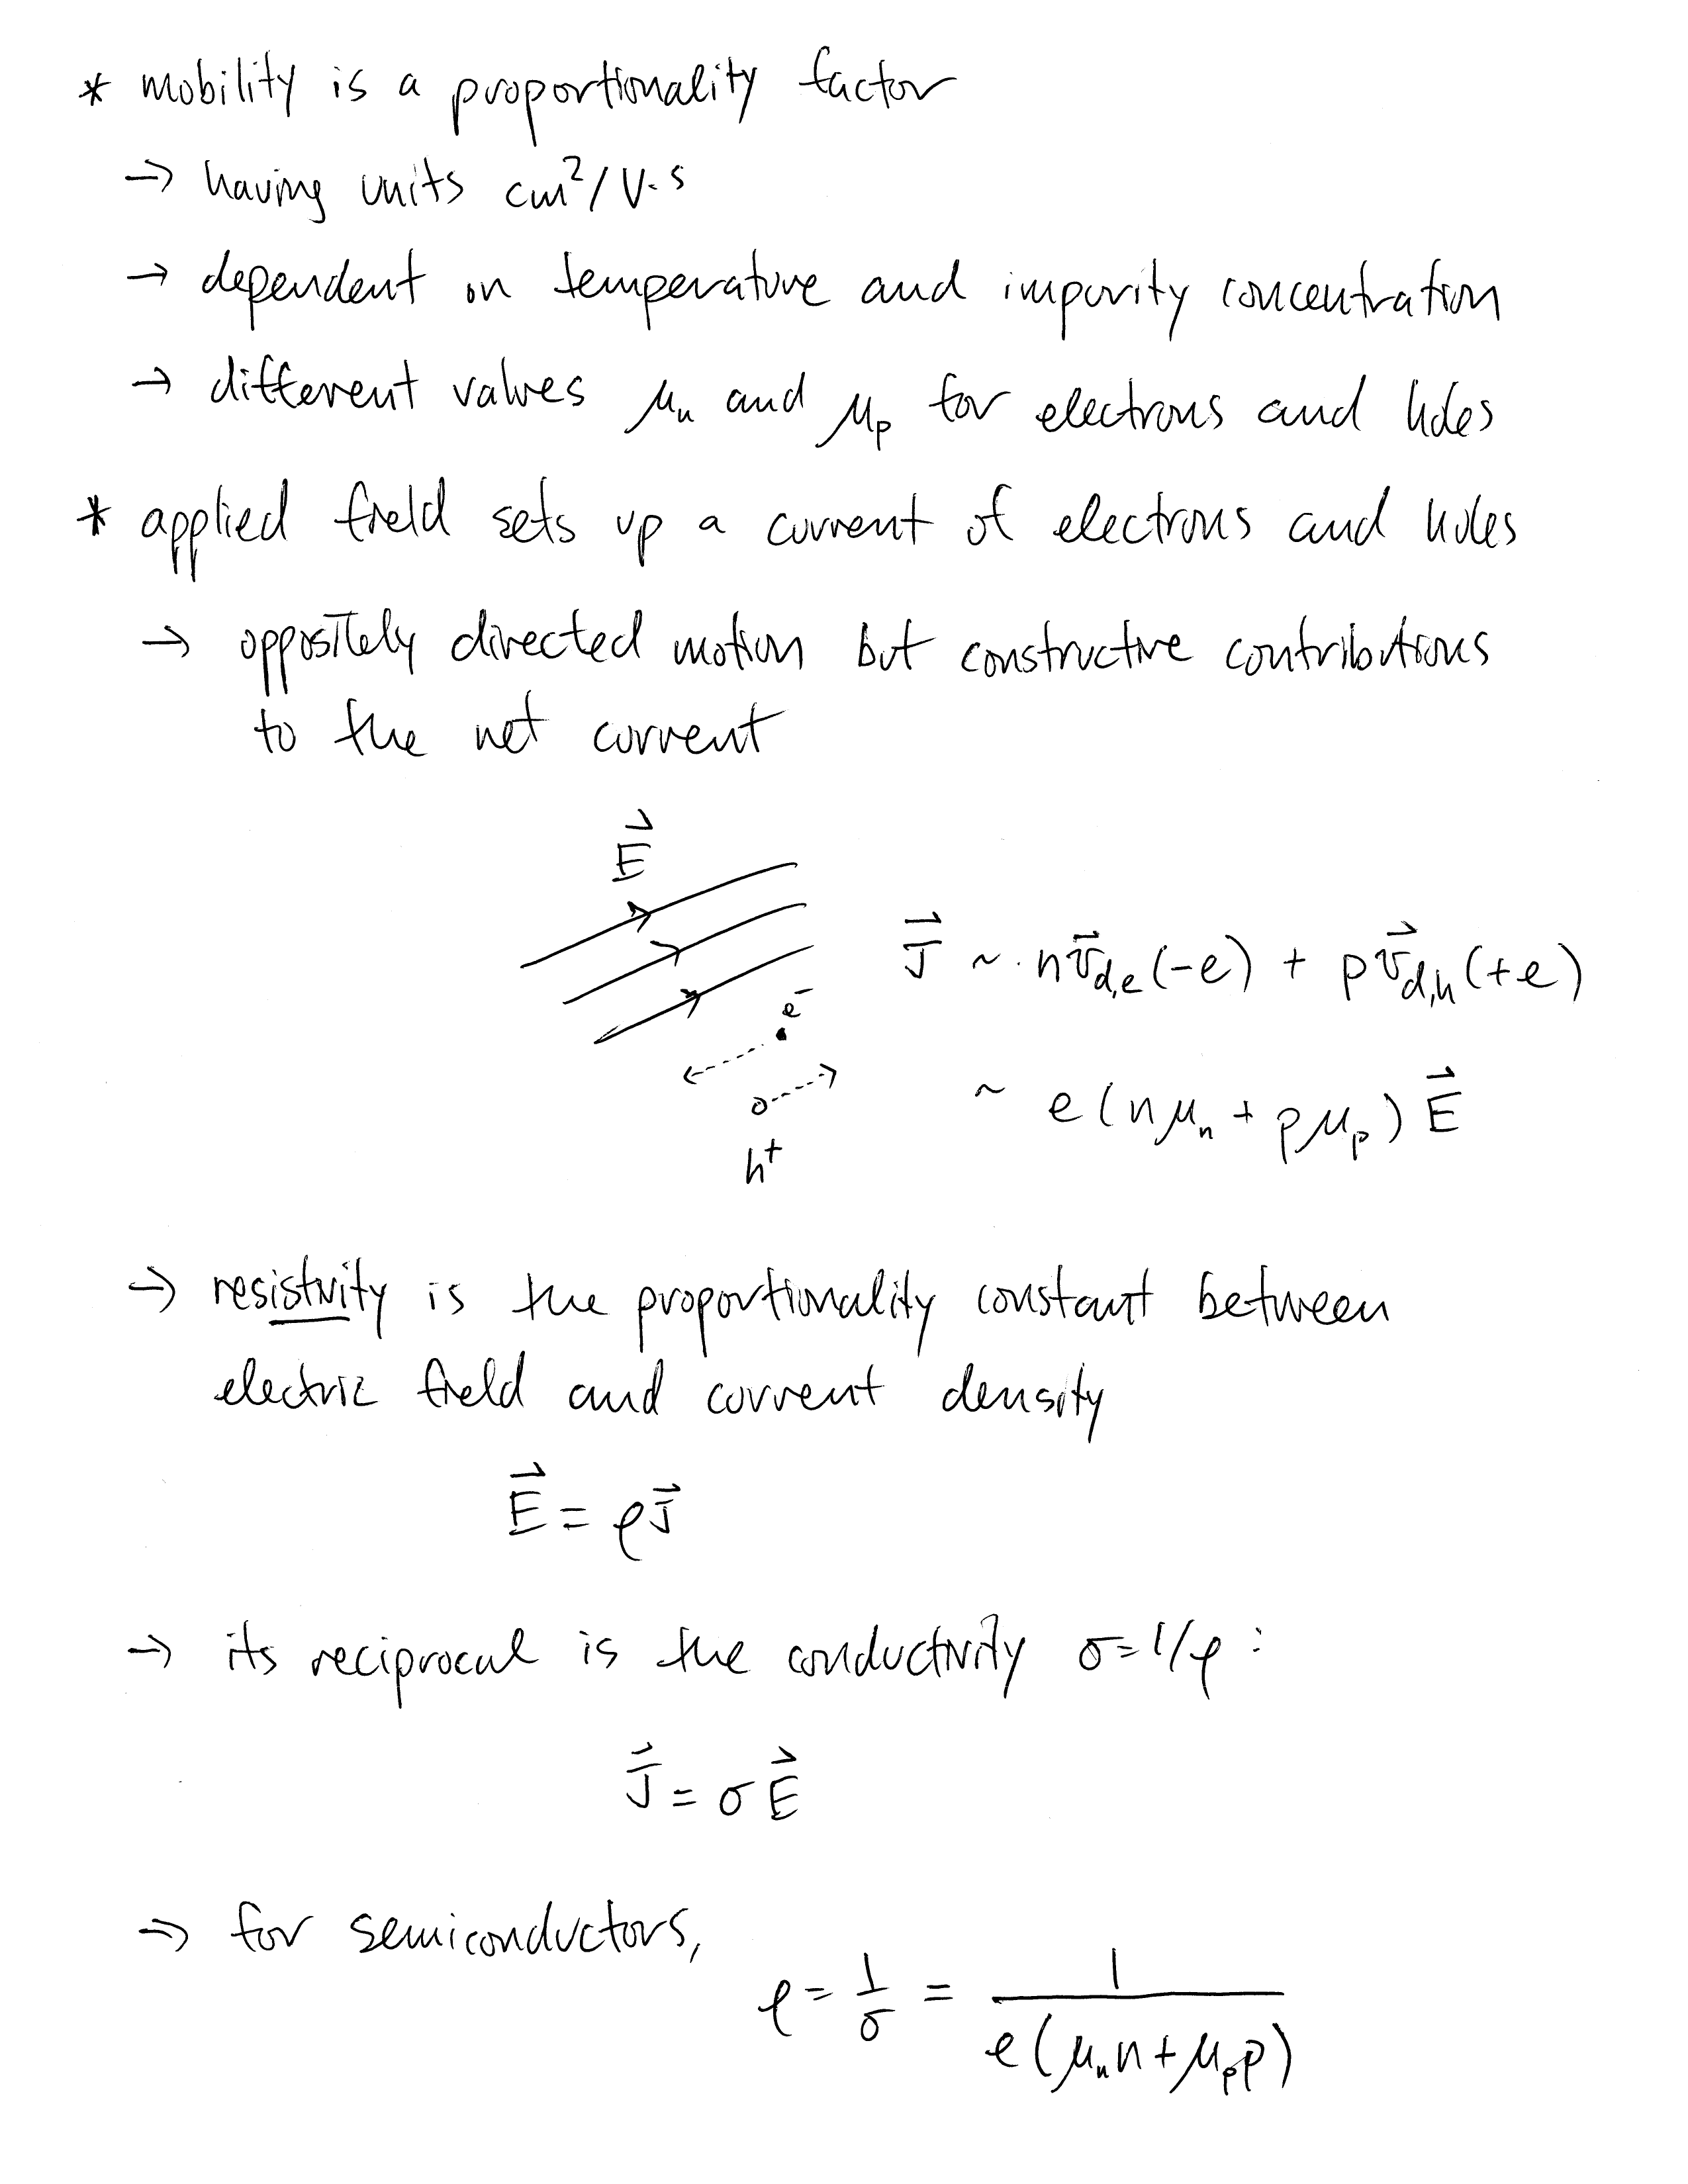 * mobility is a proportionality factor
→ having units cm²/V·s
→ dependent on temperature and impurity concentration
→ different values μₙ and μₚ for electrons and holes
* applied field sets up a current of electrons and holes
→ oppositely directed motion but constructive contributions
to the net current
E⃗
J⃗ ~ n v⃗_d,e (-e) + p v⃗_d,h (+e)
e⁻
~ e(nμₙ + pμₚ) E⃗
h⁺
→ resistivity is the proportionality constant between
electric field and current density
E⃗ = ρJ⃗
→ its reciprocal is the conductivity σ=1/ρ :
J⃗ = σE⃗
→ for semiconductors,
ρ = 1/σ = 1/(e(μₙn + μₚp))